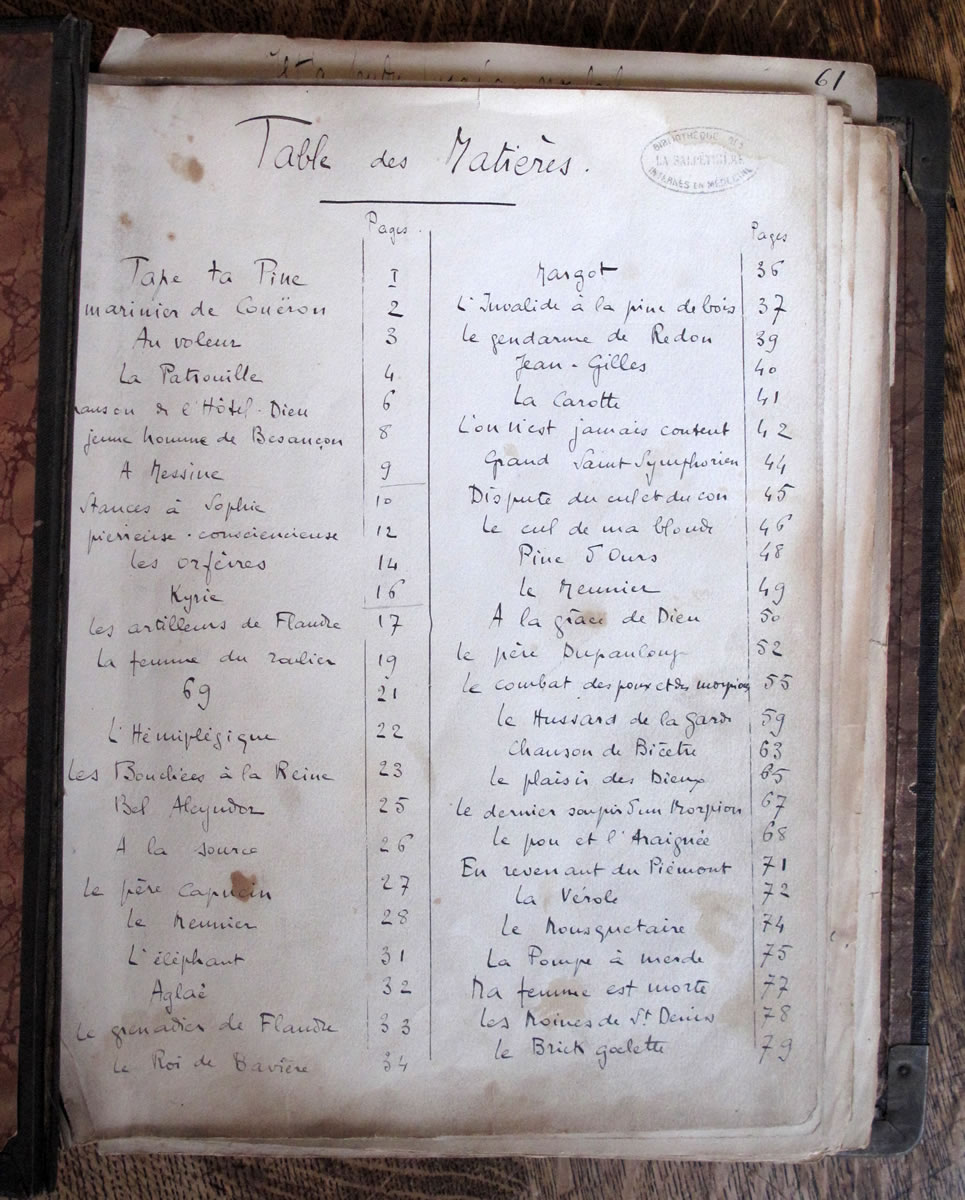 61
Table des Matières.
BIBLIOTHÈQUE DES
LA SALPÊTRIÈRE
INTERNES EN MÉDECINE
Pages.
Tape ta Pine I
marinier de Couëron 2
Au voleur 3
La Patrouille 4
anson de l'Hôtel-Dieu 6
jeune homme de Besançon 8
A Messine 9
Stances à Sophie 10
pierreuse consciencieuse 12
Les orfèvres 14
Kyrie 16
Les artilleurs de Flandre 17
La femme du roulier 19
69 21
L'Hémiplégique 22
Les Bouchées à la Reine 23
Bel Alcyndor 25
A la source 26
Le père Capucin 27
Le Meunier 28
L'éléphant 31
Aglaë 32
Le grenadier de Flandre 33
Le Roi de Bavière 34
Pages
Margot 36
L'Invalide à la pine de bois 37
Le gendarme de Redon 39
Jean-Gilles 40
La Carotte 41
L'on n'est jamais content 42
Grand Saint Symphorien 44
Dispute du cul et du con 45
Le cul de ma blonde 46
Pine d'Ours 48
Le Meunier 49
A la grâce de Dieu 50
Le père Dupanloup 52
Le combat des poux et des morpions 55
Le Hussard de la garde 59
Chanson de Bicêtre 63
Le plaisir des Dieux 65
Le dernier soupir d'un Morpion 67
Le pou et l'Araignée 68
En revenant du Piémont 71
La Vérole 72
Le Mousquetaire 74
La Pompe à merde 75
Ma femme est morte 77
Les Moines de St Denis 78
Le Brick goëlette 79